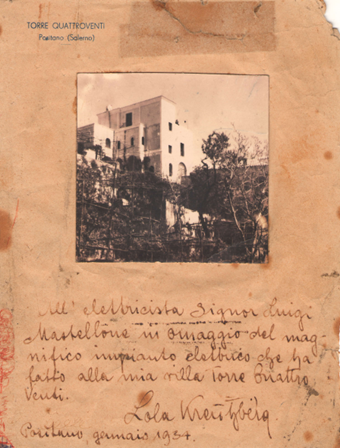 TORRE QUATTROVENTI
Positano (Salerno)
All' elettricista Signor Luigi
Mastellone in omaggio del mag
nifico impianto elettrico che ha
fatto alla mia villa Torre Quattro
Venti.
Lola Kreutzberg
Positano gennaio 1934.